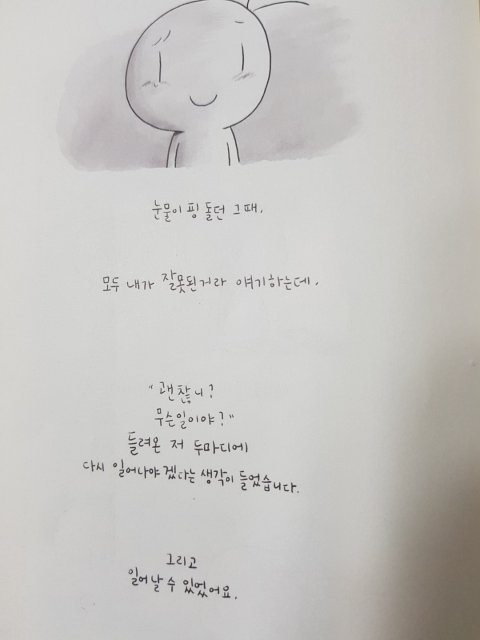 눈물이 핑 돌던 그때,
모두 내가 잘못된거라 얘기하는데,
"괜찮니?
무슨일이야?"
들려온 저 두마디에
다시 일어나야 겠다는 생각이 들었습니다.
그리고
일어날 수 있었어요.